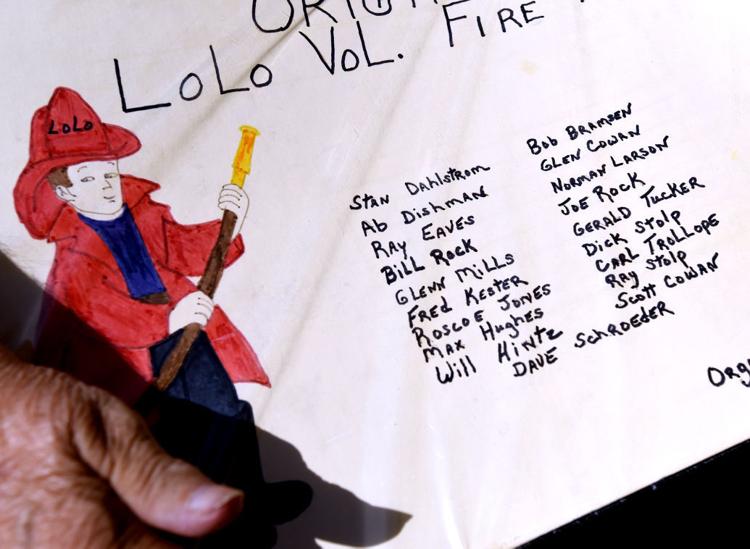 LoLo VoL. FIRE
LoLo
Stan Dahlstrom
Ab Dishman
Ray Eaves
Bill Rock
Glenn Mills
Fred Kester
Roscoe Jones
Max Hughes
Will Hintz
Bob Bramsen
Glen Cowan
Norman Larson
Joe Rock
Gerald Tucker
Dick Stolp
Carl Trollope
Ray Stolp
Scott Cowan
Dave Schroeder